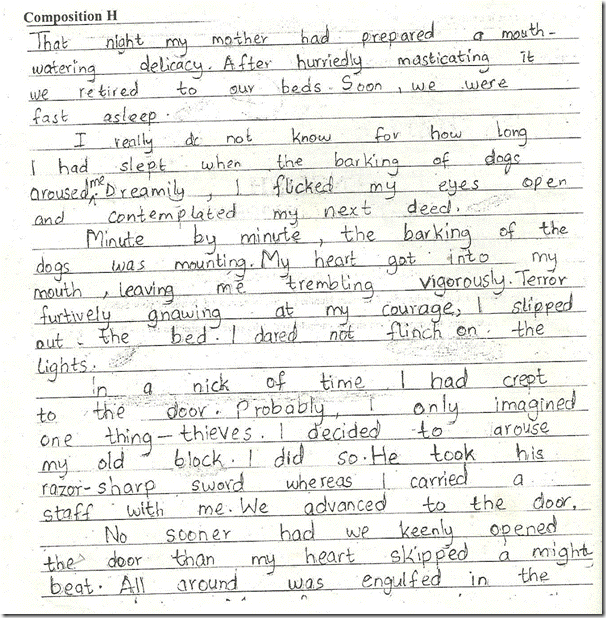 Composition H
That night my mother had prepared a mouth-
watering delicacy. After hurriedly masticating it
we retired to our beds. Soon, we were
fast asleep.
I really do not know for how long
I had slept when the barking of dogs
aroused me. Dreamily, I flicked my eyes open
and contemplated my next deed.
Minute by minute, the barking of the
dogs was mounting. My heart got into my
mouth, leaving me trembling vigorously. Terror
furtively gnawing at my courage, I slipped
out the bed. I dared not flinch on the
lights.
In a nick of time I had crept
to the door. Probably, I only imagined
one thing – thieves. I decided to arouse
my old block. I did so. He took his
razor-sharp sword whereas I carried a
staff with me. We advanced to the door.
No sooner had we keenly opened
the door than my heart skipped a might
beat. All around was engulfed in the